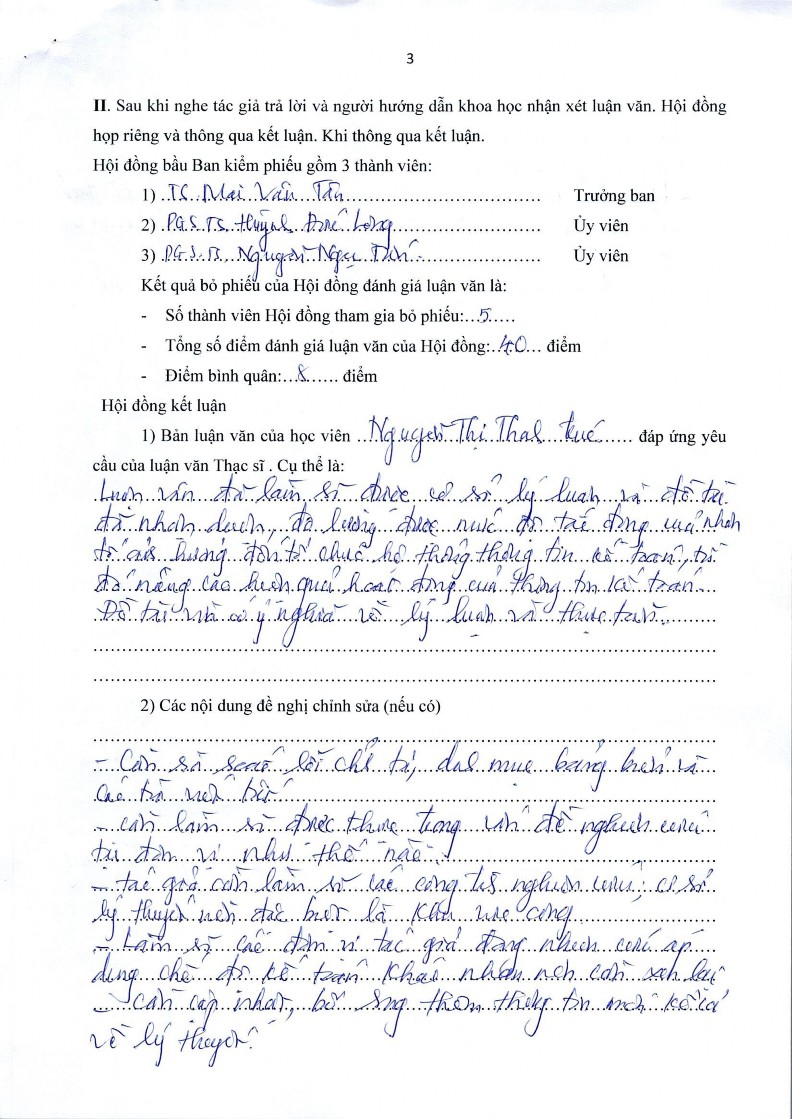 3
II. Sau khi nghe tác giả trả lời và người hướng dẫn khoa học nhận xét luận văn. Hội đồng
họp riêng và thông qua kết luận. Khi thông qua kết luận.
Hội đồng bầu Ban kiểm phiếu gồm 3 thành viên:
1) TS. Mai Văn Tân Trưởng ban
2) PGS.TS. Huỳnh Đức Lộng Ủy viên
3) PGS.TS. Nguyễn Ngọc Ủy viên
Kết quả bỏ phiếu của Hội đồng đánh giá luận văn là:
- Số thành viên Hội đồng tham gia bỏ phiếu:...5.....
- Tổng số điểm đánh giá luận văn của Hội đồng:..40.... điểm
- Điểm bình quân:...8...... điểm
Hội đồng kết luận
1) Bản luận văn của học viên ...Nguyễn Thị Thanh...... đáp ứng yêu
cầu của luận văn Thạc sĩ . Cụ thể là:
Luận văn đã làm rõ được cơ sở lý luận và đề tài
đã nhận định, đo lường được mức độ tác động của nhân
tố ảnh hưởng đến tổ chức hệ thống thông tin kế toán, từ
đó nâng cao hiệu quả hoạt động của thông tin kế toán
Đề tài có ý nghĩa về lý luận và thực tiễn
2) Các nội dung đề nghị chỉnh sửa (nếu có)
- Cần rà soát lỗi chính tả, danh mục bảng biểu và
- Cần làm rõ được thực trạng vấn đề nghiên cứu
tại đơn vị như thế nào
- Tác giả cần làm rõ các công trình nghiên cứu, cơ sở
lý thuyết nền đặc biệt là khu vực công
- Làm rõ các đơn vị tác giả đang nghiên cứu áp
dụng chế độ kế toán khác nhau nên cần xem lại
- cần cập nhật, bổ sung thêm thông tin mới kể cả
về lý thuyết.